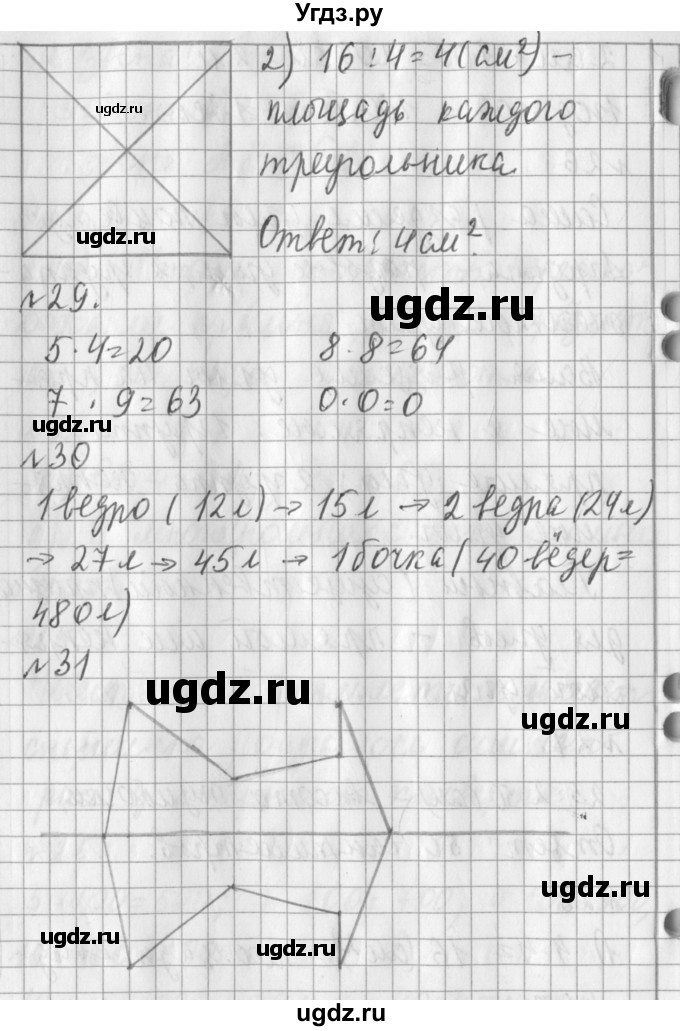 Угдз.ру
2) 16 : 4 = 4 (см²) –
площадь каждого
треугольника.
Ответ: 4 см².
ugdz.ru
ugdz.ru
№29.
ugdz.ru
5 · 4 = 20 8 · 8 = 64
7 · 9 = 63 0 · 0 = 0
ugdz.ru
№30
1 ведро (12л) → 15л → 2 ведра (24л)
→ 27л → 45л → 1 бочка (40 вёдер =
480л)
№31
ugdz.ru
ugdz.ru
ugdz.ru
ugdz.ru
ugdz.ru
ugdz.ru